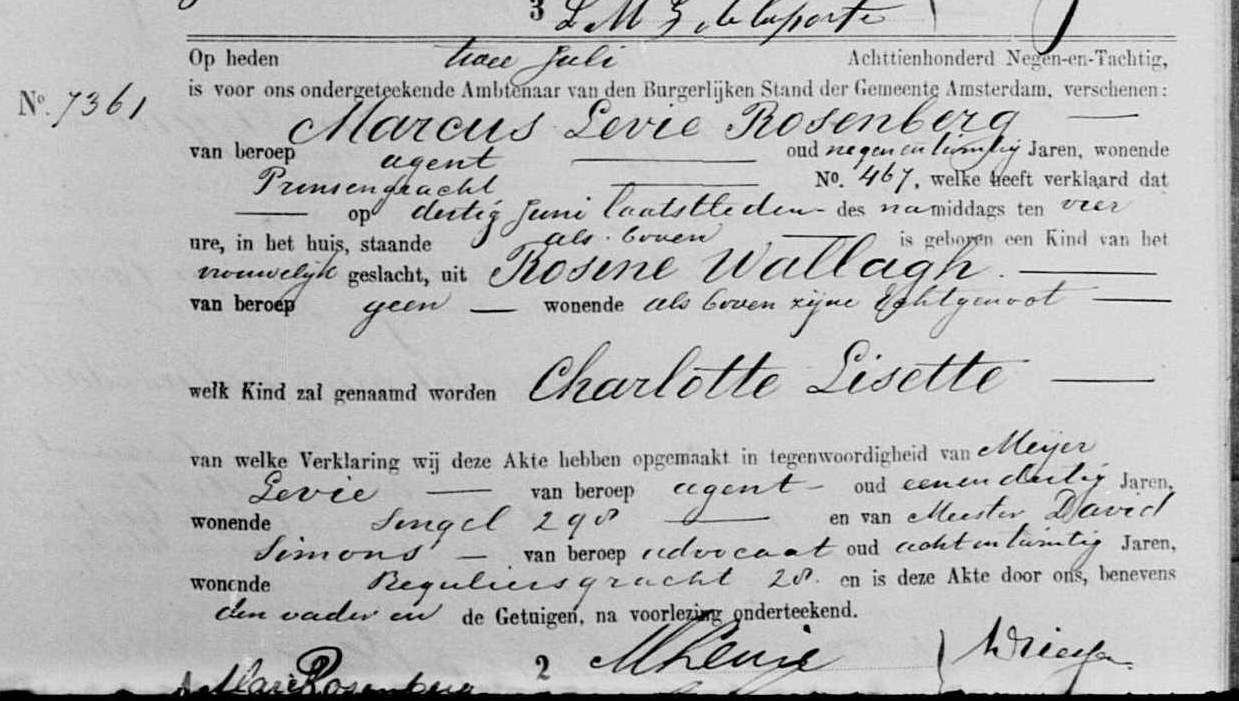 3 L M G de la porte
Op heden twee Juli Achttienhonderd Negen-en-Tachtig,
No. 7361
is voor ons ondergeteekende Ambtenaar van den Burgerlijken Stand der Gemeente Amsterdam, verschenen:
Marcus Levie Rosenberg
van beroep agent oud negen en twintig Jaren, wonende
Prinsengracht No. 467, welke heeft verklaard dat
op dertig Juni laatstleden des namiddags ten vier
ure, in het huis, staande als boven is geboren een Kind van het
vrouwelijk geslacht, uit Rosine Wallagh.
van beroep geen wonende als boven zijne Echtgenoot
welk Kind zal genaamd worden Charlotte Lisette
van welke Verklaring wij deze Akte hebben opgemaakt in tegenwoordigheid van Meijer
Levie van beroep agent oud een en dertig Jaren,
wonende Singel 298 en van Meester David
Simons van beroep advocaat oud acht en twintig Jaren,
wonende Reguliersgracht 28. en is deze Akte door ons, benevens
den vader en de Getuigen, na voorlezing onderteekend.
2 M Levie
Rosenberg